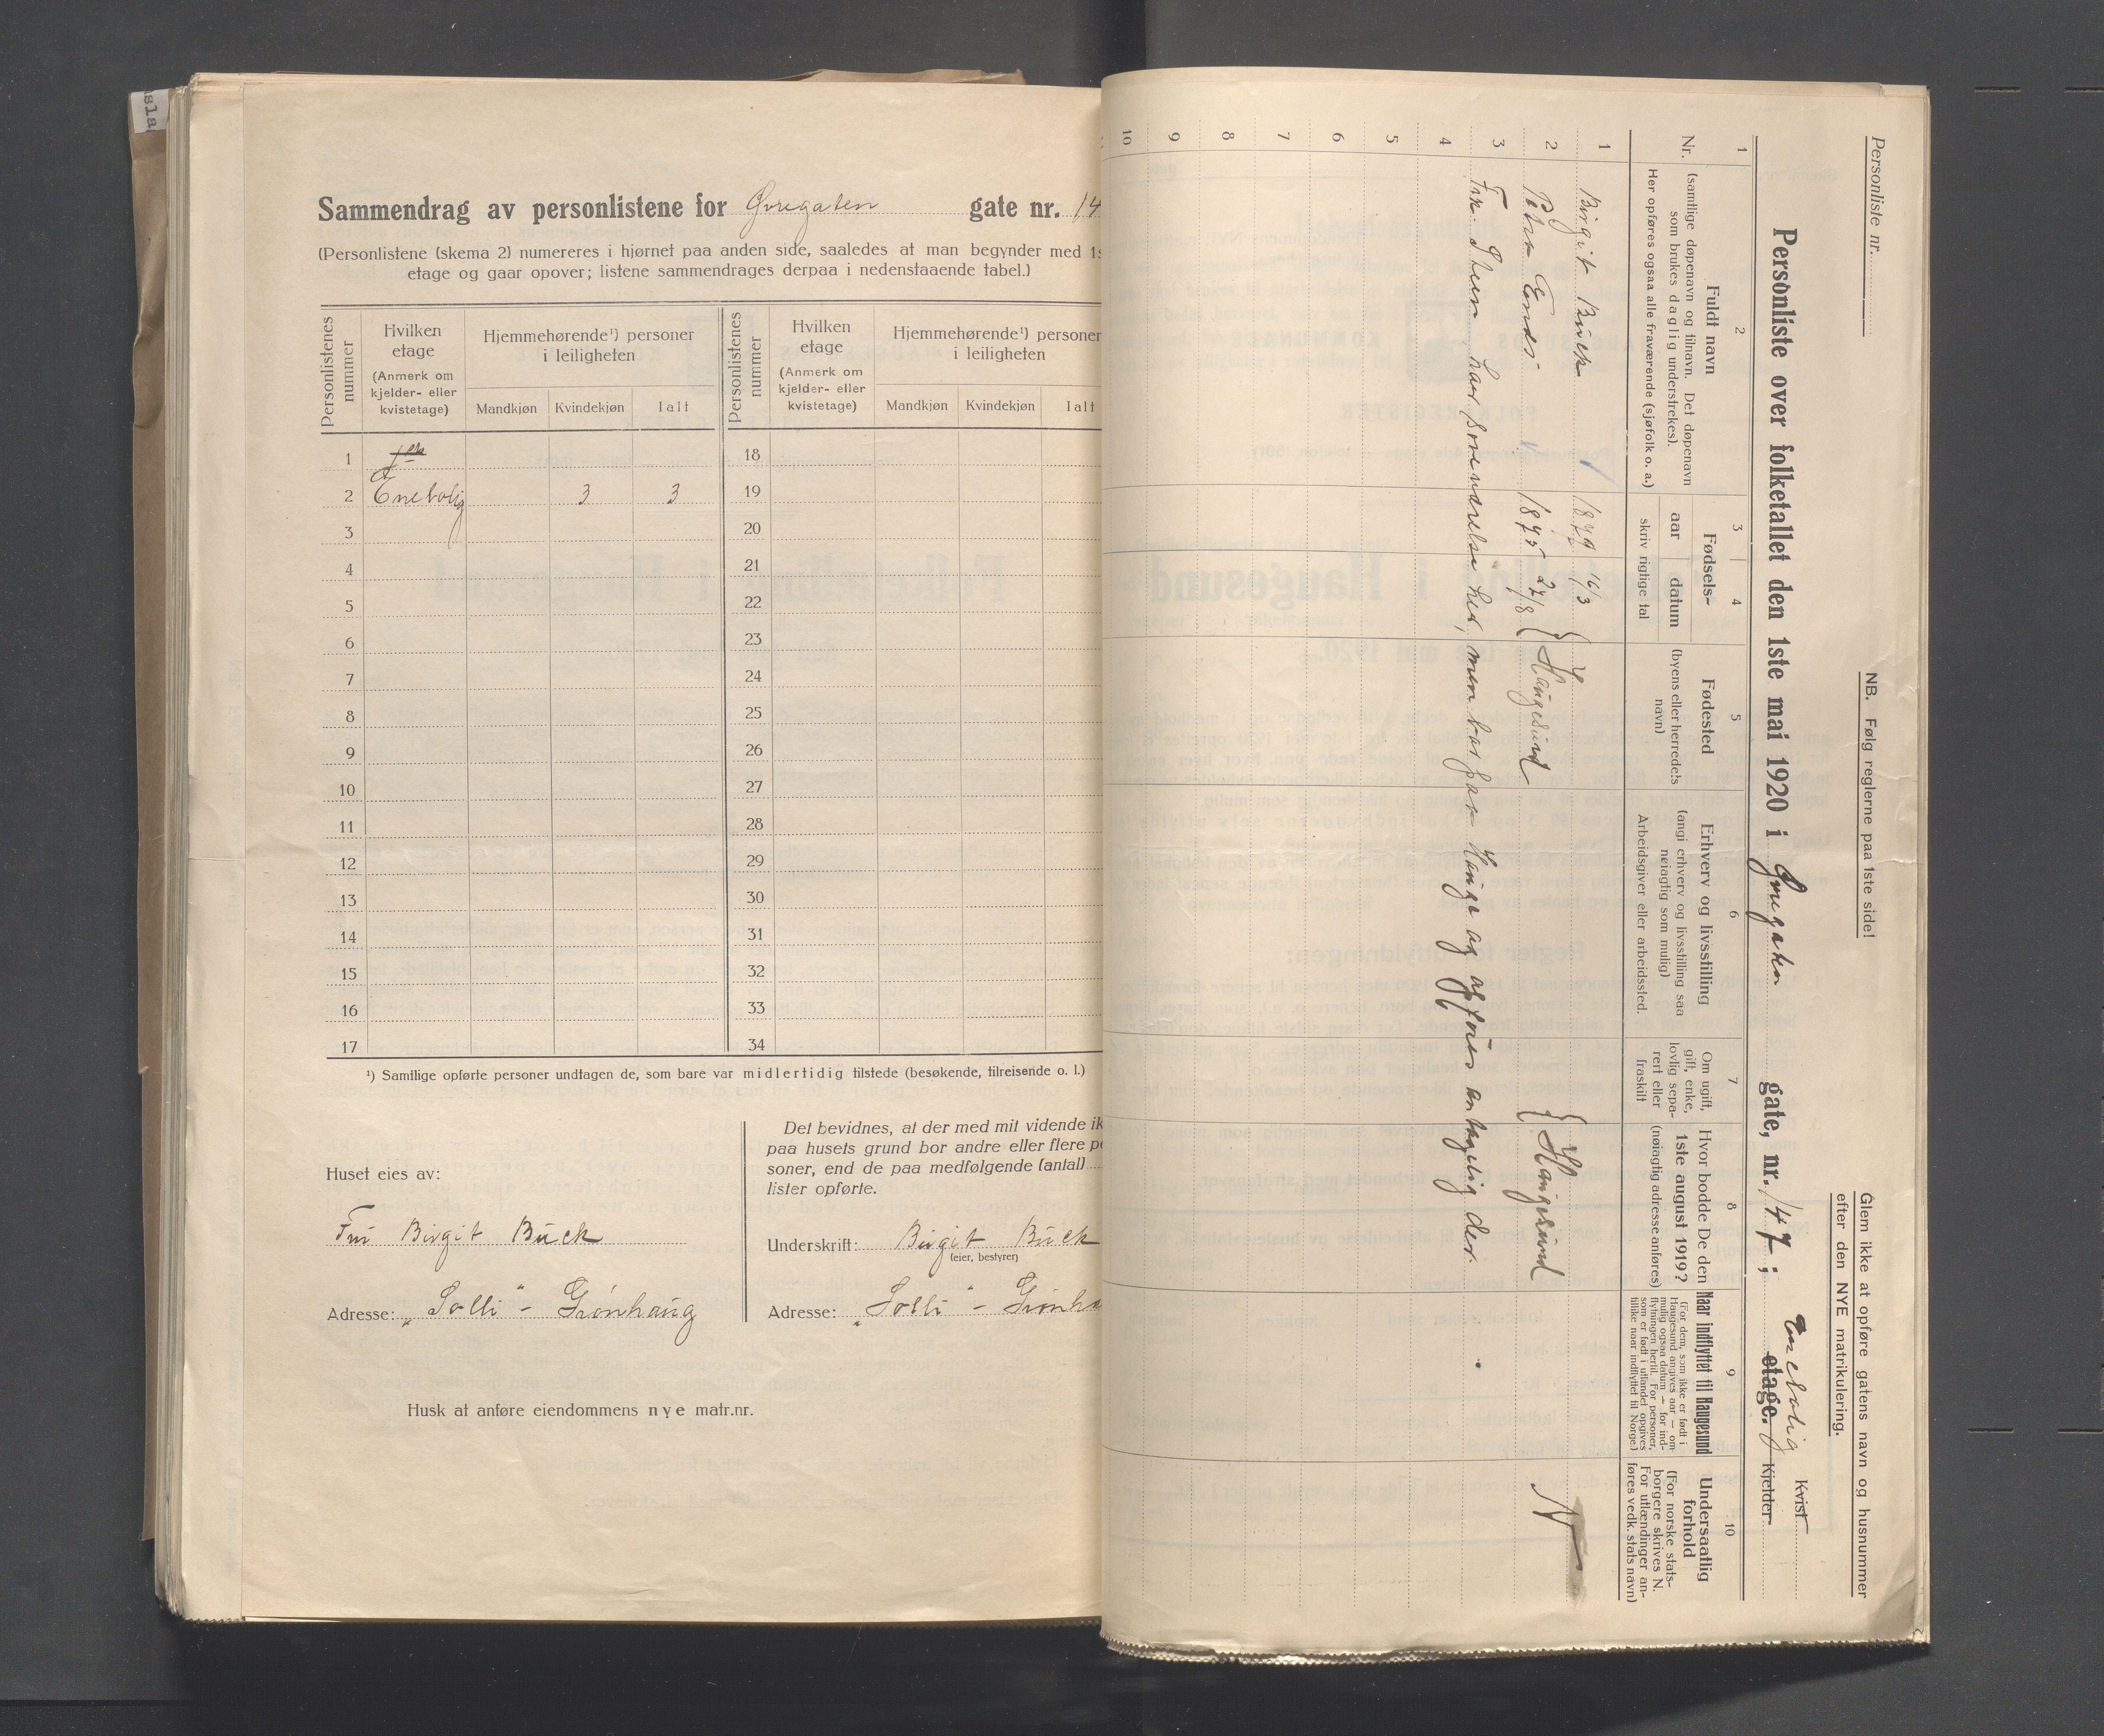 Sammendrag av personlistene for Øvregaten gate nr. 14
(Personlistene (skema 2) numereres i hjørnet paa anden side, saaledes at man begynder med 1s
etage og gaar opover; listene sammendrages derpaa i nedenstaaende tabel.)
Personlistenes nummer
Hvilken etage
(Anmerk om kjelder- eller kvistetage)
Hjemmehørende¹) personer i leiligheten
Mandkjøn Kvindekjøn Ialt
Personlistenes nummer
Hvilken etage
(Anmerk om kjelder- eller kvistetage)
Hjemmehørende¹) personer i leiligheten
Mandkjøn Kvindekjøn Ialt
1 18
2 Enebolig 3 3 19
3 20
4 21
5 22
6 23
7 24
8 25
9 26
10 27
11 28
12 29
13 30
14 31
15 32
16 33
17 34
¹) Samtlige opførte personer undtagen de, som bare var midlertidig tilstede (besøkende, tilreisende o. l.)
Huset eies av:
Fru Birgit Buck
Adresse: "Solli" - Grønhaug
Det bevidnes, at der med mit vidende ik
paa husets grund bor andre eller flere pe
soner, end de paa medfølgende (antal)
lister opførte.
Underskrift: Birgit Buck
(eier, bestyrer)
Adresse: "Solli" - Grønha
Husk at anføre eiendommens nye matr.nr.
Personliste nr.
NB. Følg reglerne paa 1ste side!
Glem ikke at opføre gatens navn og husnummer
efter den NYE matrikulering.
Personliste over folketallet den 1ste mai 1920 i Øvregaten gate, nr. 147; Enebolig etage. Kvist Kjelder
1 2 3 4 5 6 7 8 9 10
Nr.
Fuldt navn
(samtlige døpenavn og tilnavn. Det døpenavn
som brukes daglig understrekes).
Her opføres ogsaa alle fraværende (sjøfolk o. a.)
Fødsels-
aar datum
skriv rigtige tal
Fødested
(byens eller herredets
navn)
Erhverv og livsstilling
(angi erhverv og livsstilling saa
nøiagtig som mulig)
Arbeidsgiver eller arbeidssted.
Om ugift,
gift, enke,
lovlig sepa-
rert eller
fraskilt
Hvor bodde De den
1ste august 1919?
(nøiagtig adresse anføres)
Naar indflyttet til Haugesund
(For dem, som ikke er født i
Haugesund angives aar — om
mulig ogsaa datum — for ind-
flytningen hertil. For personer,
som er født i utlandet opgives
tillike naar indflyttet til Norge.)
Undersaatlig
forhold
(For norske stats-
borgere skrives N.
For utlændinger an-
føres vedk. stats navn)
1 Birgit Buck 1879 16/3
2 Petra Endes 1875 27/8 Haugesund Haugesund N
3 Frk. Steen har sommerværelse her, men bor paa Hauge og opføres antagelig der.
4
5
6
7
8
9
10